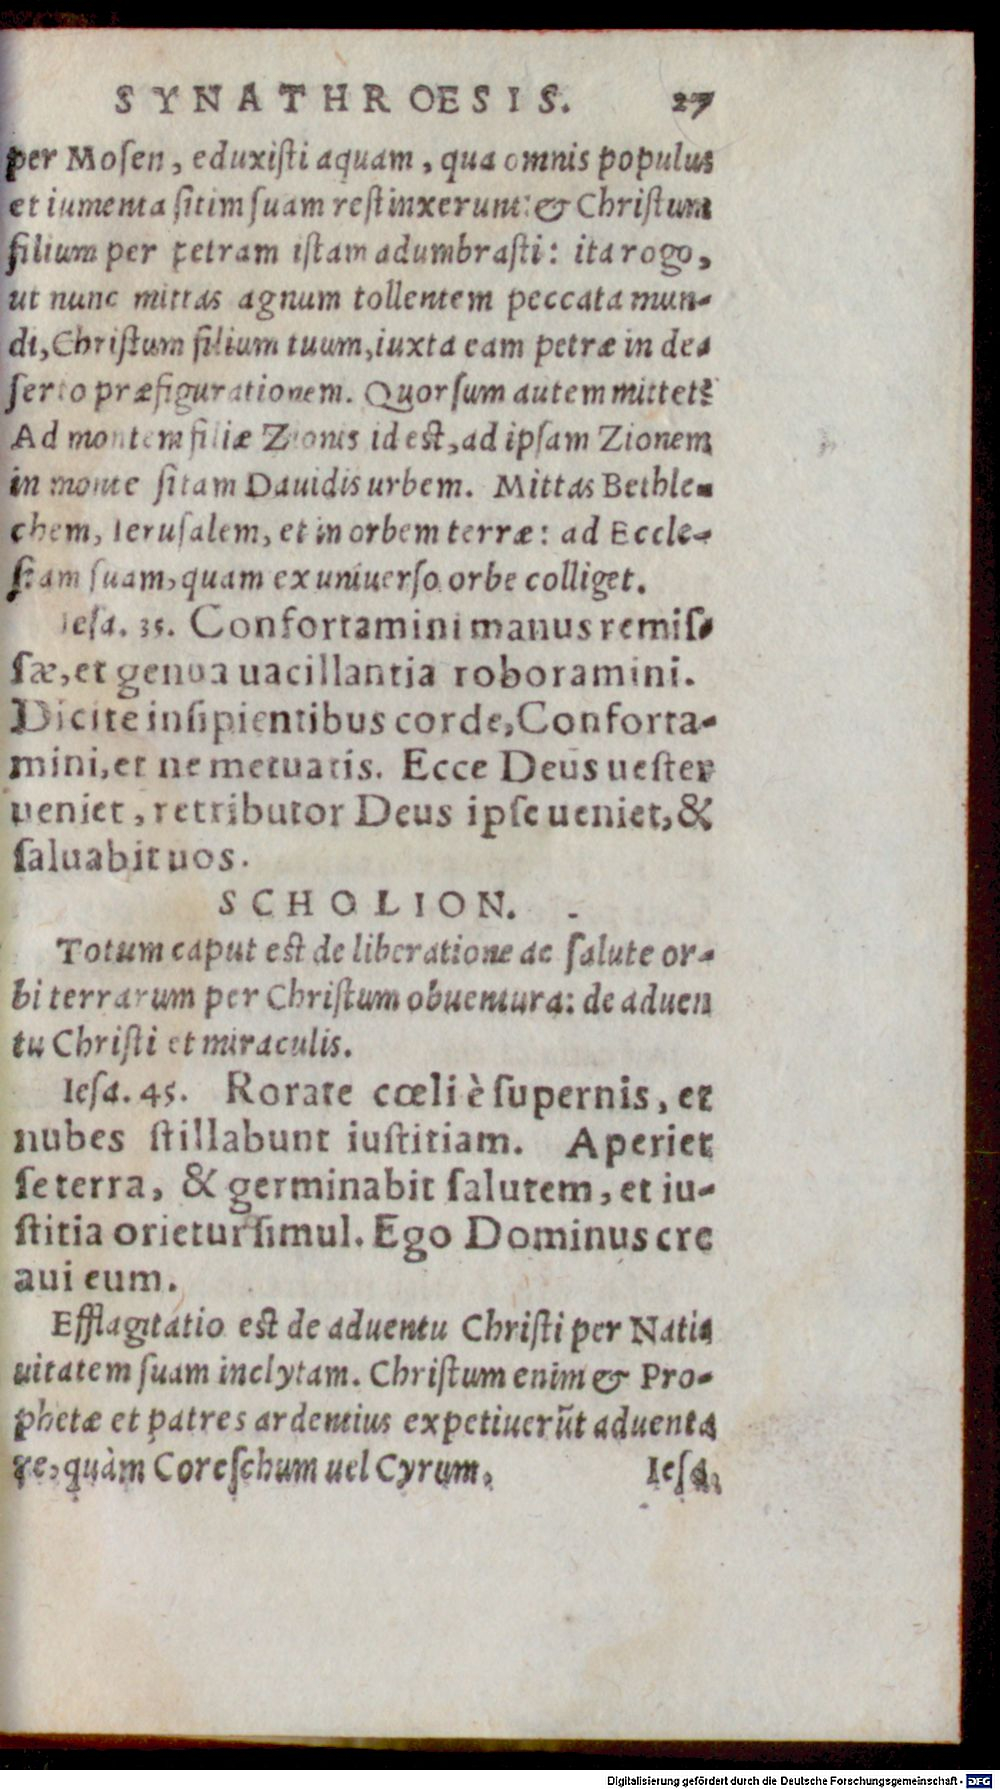 SYNATHROESIS. 27
per Mosen, eduxisti aquam, qua omnis populus
et iumenta sitim suam restinxerunt: & Christum
filium per petram istam adumbrasti: ita rogo,
ut nunc mittas agnum tollentem peccata mun-
di, Christum filium tuum, iuxta eam petræ in de-
serto præfigurationem. Quorsum autem mittet?
Ad montem filiæ Zionis id est, ad ipsam Zionem
in monte sitam Dauidis urbem. Mittas Bethle-
chem, Ierusalem, et in orbem terræ: ad Eccle-
siam suam, quam ex uniuerso orbe colliget.
Iesa. 35. Confortamini manus remis-
sæ, et genua uacillantia roboramini.
Dicite insipientibus corde, Conforta-
mini, et ne metuatis. Ecce Deus uester
ueniet, retributor Deus ipse ueniet, &
saluabit uos.
SCHOLION.
Totum caput est de liberatione ac salute or-
bi terrarum per Christum obuentura: de aduen
tu Christi et miraculis.
Iesa. 45. Rorate cœli è supernis, et
nubes stillabunt iustitiam. Aperiet
se terra, & germinabit salutem, et iu-
stitia orietur simul. Ego Dominus cre
aui eum.
Efflagitatio est de aduentu Christi per Nati-
uitatem suam inclytam. Christum enim & Pro-
phetæ et patres ardentius expetiuerũt aduenta
re, quàm Coreschum uel Cyrum.
Iesa.
Digitalisierung gefördert durch die Deutsche Forschungsgemeinschaft - DFG